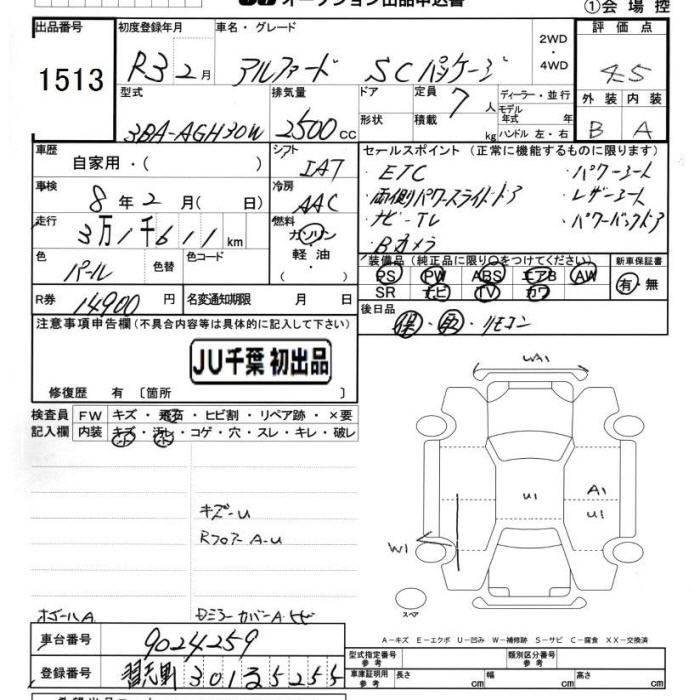 オークション出品申込書
①会場控
出品番号
1513
初度登録年月
R3 2月
車名・グレード
アルファード SCパッケージ
2WD・4WD
評価点
4.5
外装 内装
B A
型式
3BA-AGH30W
排気量
2500cc
ドア
形状
定員 7人
積載 kg
ディーラー・並行
モデル年式 年
ハンドル 左・右
車歴
自家用・( )
シフト
IAT
セールスポイント (正常に機能するものに限ります)
・ETC
・パワーシート
・両側パワースライドドア
・レザーシート
・ナビ-TV
・パワーバックドア
・Bカメラ
車検
8年2月( 日)
冷房
AAC
走行
3万1千611km
燃料
ガソリン
軽油・
色
パール
色替
色コード
装備品(純正品に限り○をつけてください)
PS PW ABS エアB AW
SR ナビ TV カワ
新車保証書
有・無
R券
14900円
名変通知期限 月 日
後日品
保・取・リモコン
注意事項申告欄(不具合内容等は具体的に記入して下さい)
JU千葉 初出品
修復歴 有〔箇所 〕
検査員記入欄
FW キズ・飛石・ヒビ割・リペア跡・×要
内装 キズ・汚レ・コゲ・穴・スレ・キレ・破レ
WA1
U1
A1
U1
W1
スペア
キズ-U
RフロアーA-U
ホイールA
DミラーカバーA・ヒビ
A-キズ E-エクボ U-凹み W-補修跡 S-サビ C-腐食 XX-交換済
車台番号
9024259
登録番号
習志野 301 る 5255
型式指定番号 参考
類別区分番号 参考
車庫証明用 参考
長さ cm
幅 cm
高さ cm